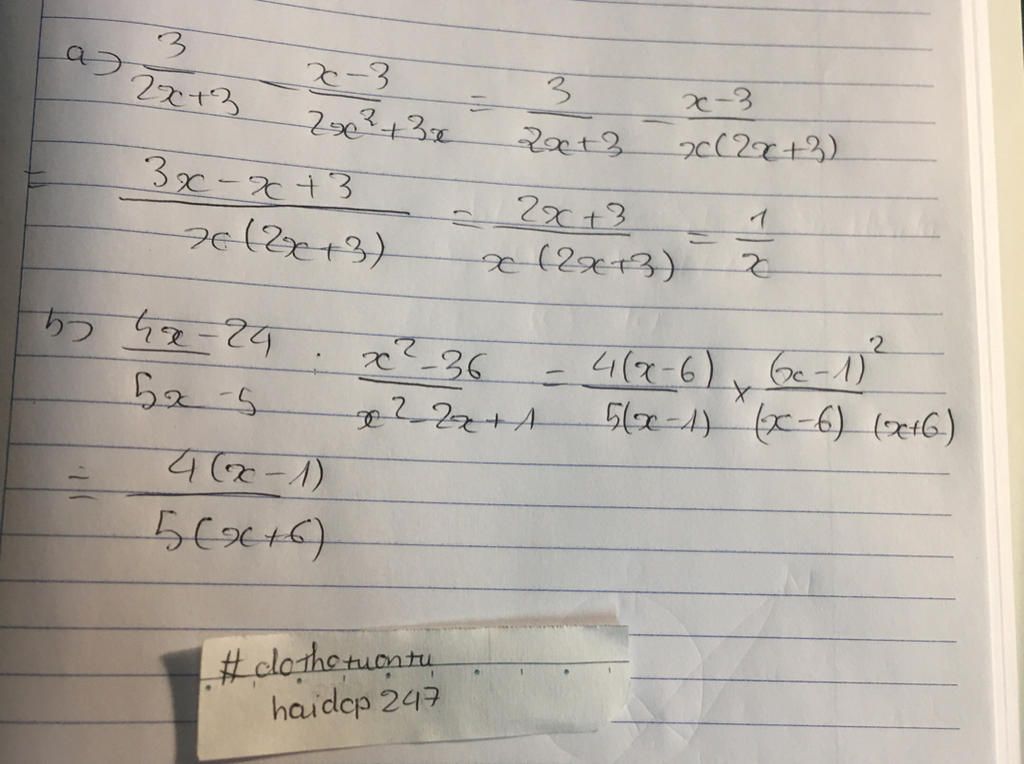 a) 3/(2x+3) - (x-3)/(2x²+3x) = 3/(2x+3) - (x-3)/(x(2x+3))
= (3x-x+3)/(x(2x+3)) = (2x+3)/(x(2x+3)) = 1/x
b) (4x-24)/(5x-5) : (x²-36)/(x²-2x+1) = 4(x-6)/5(x-1) × (x-1)²/(x-6)(x+6)
= 4(x-1)/5(x+6)
# dothotuontu
haidcp 247